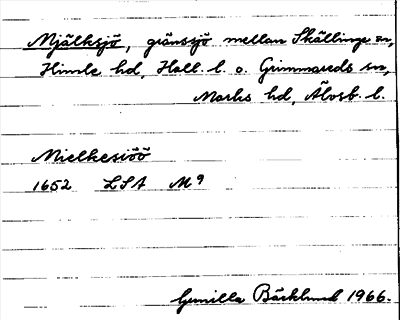 Mjälksjö, gränssjö mellan Skällinge sn,
Himle hd, Hall. l. o. Grimmareds sn,
Marks hd, Älvsb. l.
Mielkesiöö
1652 LSA M9
Gunilla Bäcklund 1966.